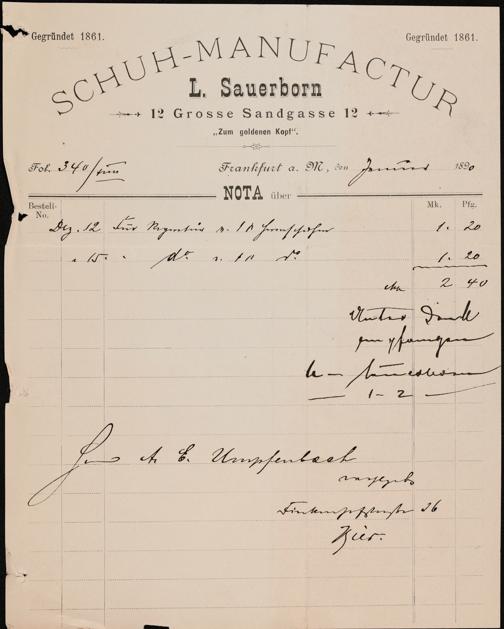 Gegründet 1861. Gegründet 1861.
SCHUH-MANUFACTUR
L. Sauerborn
12 Grosse Sandgasse 12
„Zum goldenen Kopf“.
Fol. 340/ Frankfurt a. M., den Januar 1890
NOTA über
Bestell-No. Mk. Pfg.
Dez. 12 Für Reparatur 1 1. 20
" 15. " do 1 do 1. 20
2 40
Unter Dank
empfangen
L. Sauerborn
1 - 2
Herrn A. E. Umpfenbach
36
Hier.